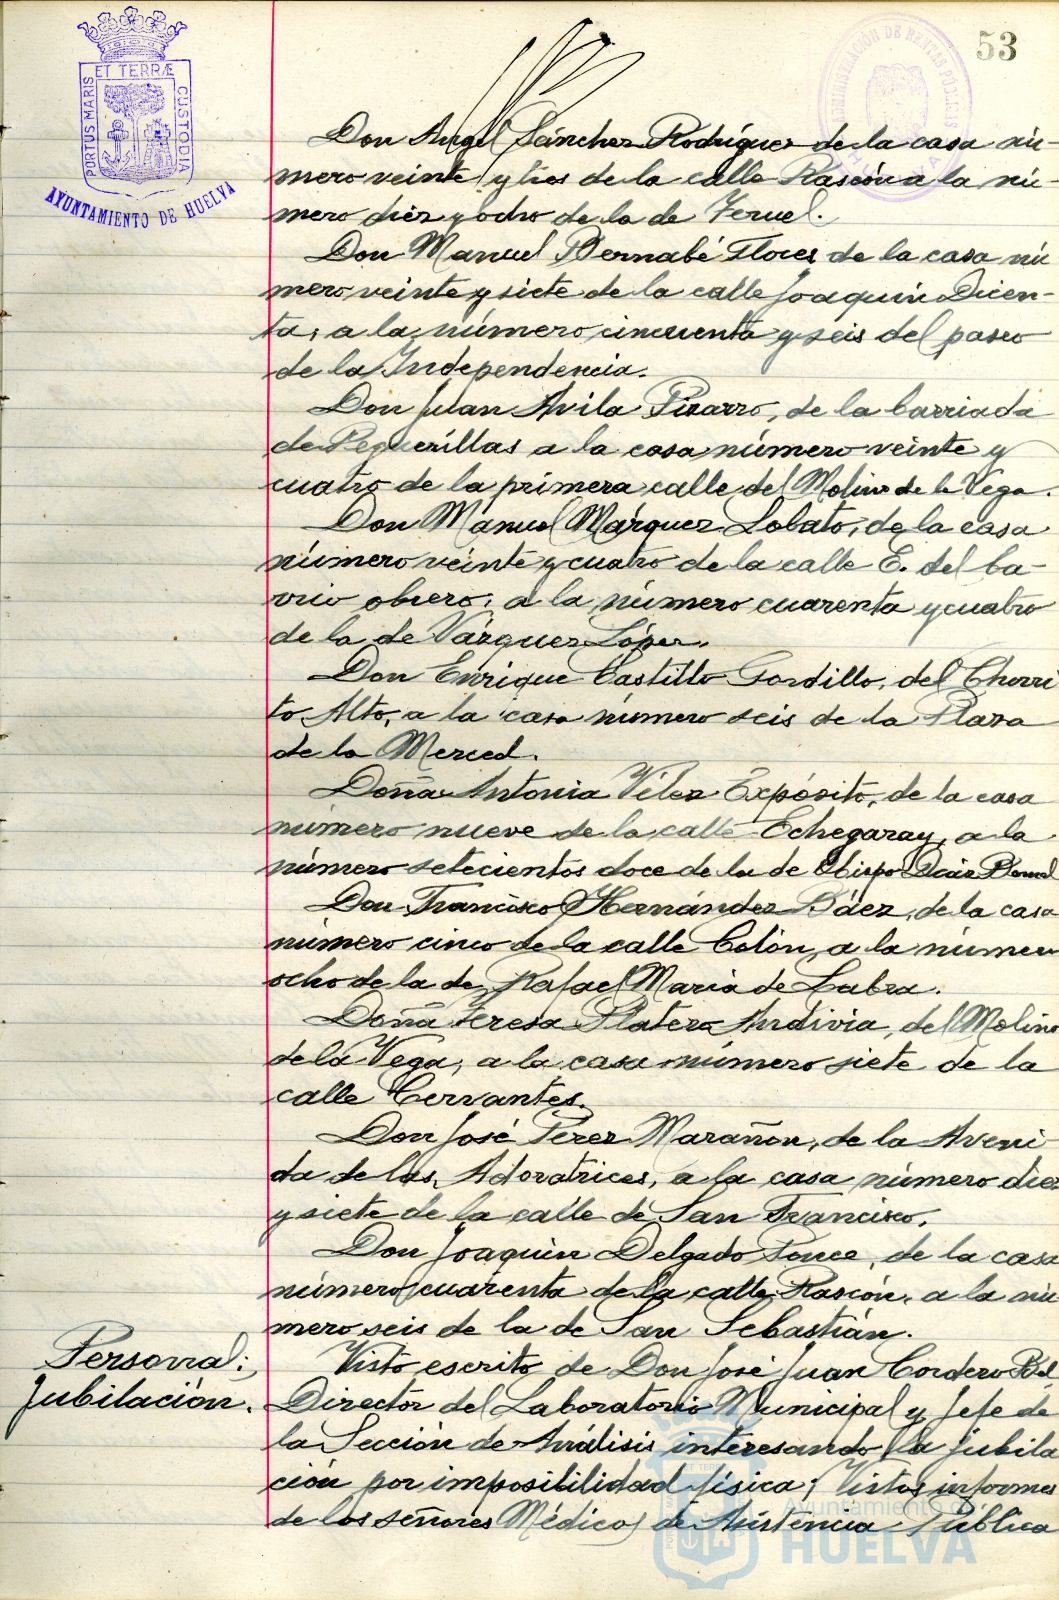 53
ET TERRÆ
PORTUS MARIS
CUSTODIA
AYUNTAMIENTO DE HUELVA
Don Angel Sánchez Rodríguez de la casa nú-
mero veinte y tres de la calle Rascón a la nú-
mero diez y ocho de la de Teruel.
Don Manuel Bernabé Flores de la casa nú
mero veinte y siete de la calle Joaquín Dicen-
ta, a la número cincuenta y seis del paseo
de la Independencia.
Don Juan Avila Pizarro, de la barriada
de Pequerillas a la casa número veinte y
cuatro de la primera calle del Molino de la Vega.
Don Manuel Márquez Lobato, de la casa
número veinte y cuatro de la calle E. del ba-
rrio obrero, a la número cuarenta y cuatro
de la de Vázquez López.
Don Enrique Castillo Gordillo, del Chorri
to Alto, a la casa número seis de la Plaza
de la Merced.
Doña Antonia Vélez Expósito, de la casa
número nueve de la calle Echegaray, a la
número setecientos doce de la de Obispo Díaz
Don Francisco Hernández Báez, de la casa
número cinco de la calle Colón, a la número
ocho de la de Rafael María de Labra.
Doña Teresa Platero Andivia, del Molino
de la Vega, a la casa número siete de la
calle Cervantes.
Don José Pérez Marañón, de la Aveni-
da de las Adoratrices, a la casa número diez
y siete de la calle de San Francisco.
Don Joaquín Delgado Ponce, de la casa
número cuarenta de la calle Rascón, a la nú
mero seis de la de San Sebastián.
Personal:
Jubilación.
Visto escrito de Don José Juan Cordero Bel,
Director del Laboratorio Municipal y Jefe de
la Sección de Análisis interesando la jubila
ción por imposibilidad física; Vistos informes
de los señores Médicos de Asistencia Pública
Ayuntamiento de
HUELVA